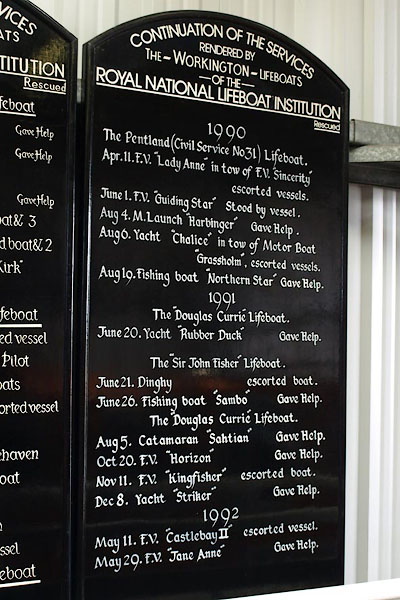 VICES
ATS
TITUTION
Rescued
feboat
Gave Help
Gave Help
Gave Help
oat& 3
d boat& 2
Kirk"
feboat
ed vessel
Pilot
oats
orted vessel
ehaven
oat
ssel
eboat
CONTINUATION OF THE SERVICES
RENDERED BY
THE-WORKINGTON-LIFEBOATS
-OF THE-
ROYAL NATIONAL LIFEBOAT INSTITUTION
Rescued
1990
The Pentland (Civil Service No 31) Lifeboat.
Apr.11. F.V. "Lady Anne" in tow of F.V. "Sincerity"
escorted vessels.
June 1. F.V. "Guiding Star" Stood by vessel.
Aug 4. M.Launch "Harbinger" Gave Help.
Aug 6. Yacht "Chalice" in tow of Motor Boat
"Grassholm", escorted vessels.
Aug 19. Fishing boat "Northern Star" Gave Help.
1991
The "Douglas Currie" Lifeboat.
June 20. Yacht "Rubber Duck" Gave Help.
The "Sir John Fisher" Lifeboat.
June 21. Dinghy escorted boat.
June 26. Fishing boat "Sambo" Gave Help.
The "Douglas Currie" Lifeboat.
Aug 5. Catamaran "Sahtian" Gave Help.
Oct 20. F.V. "Horizon" Gave Help.
Nov 11. F.V. "Kingfisher" escorted boat.
Dec 8. Yacht "Striker" Gave Help.
1992
May 11. F.V. "Castlebay II" escorted vessel.
May 29. F.V. "Jane Anne" Gave Help.